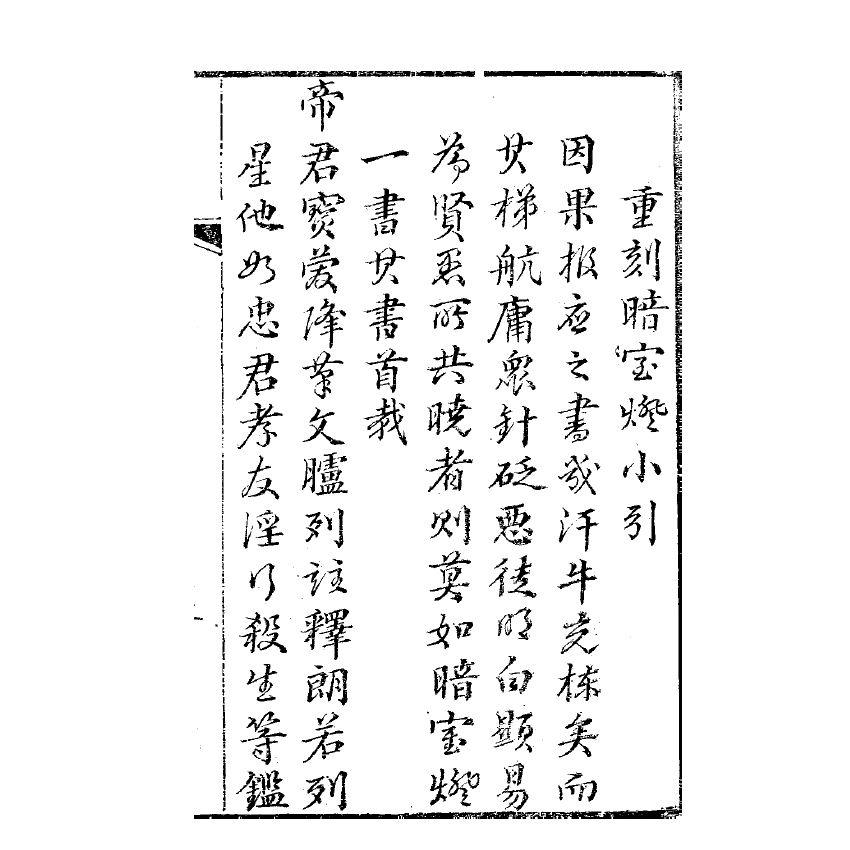 重刻暗室燈小引
因果报应之書幾汗牛充棟矣而
其梯航庸衆針砭惡徒明白顯易
為賢愚所共曉者則莫如暗室燈
一書其書首載
帝君寶箴降筆文臚列註釋朗若列
星他如忠君孝友淫行殺生等鑑